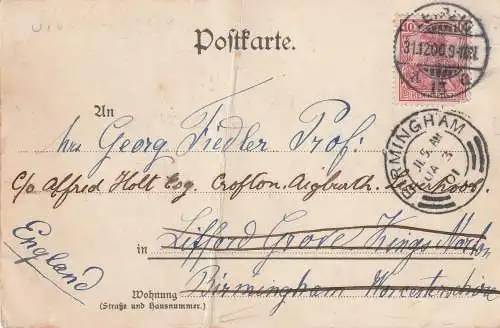 Postkarte.
10
LEIPZIG
31.12.00. 9-10V.
13
An
Georg Fiedler Prof:
C/o Alfred Holt Esq. Crofton, Aigburth, Liverpool.
BIRMINGHAM
JA 3
01
England
in Lifford Grove Kings Norton
Birmingham Worcestershire
Wohnung
(Straße und Hausnummer.)